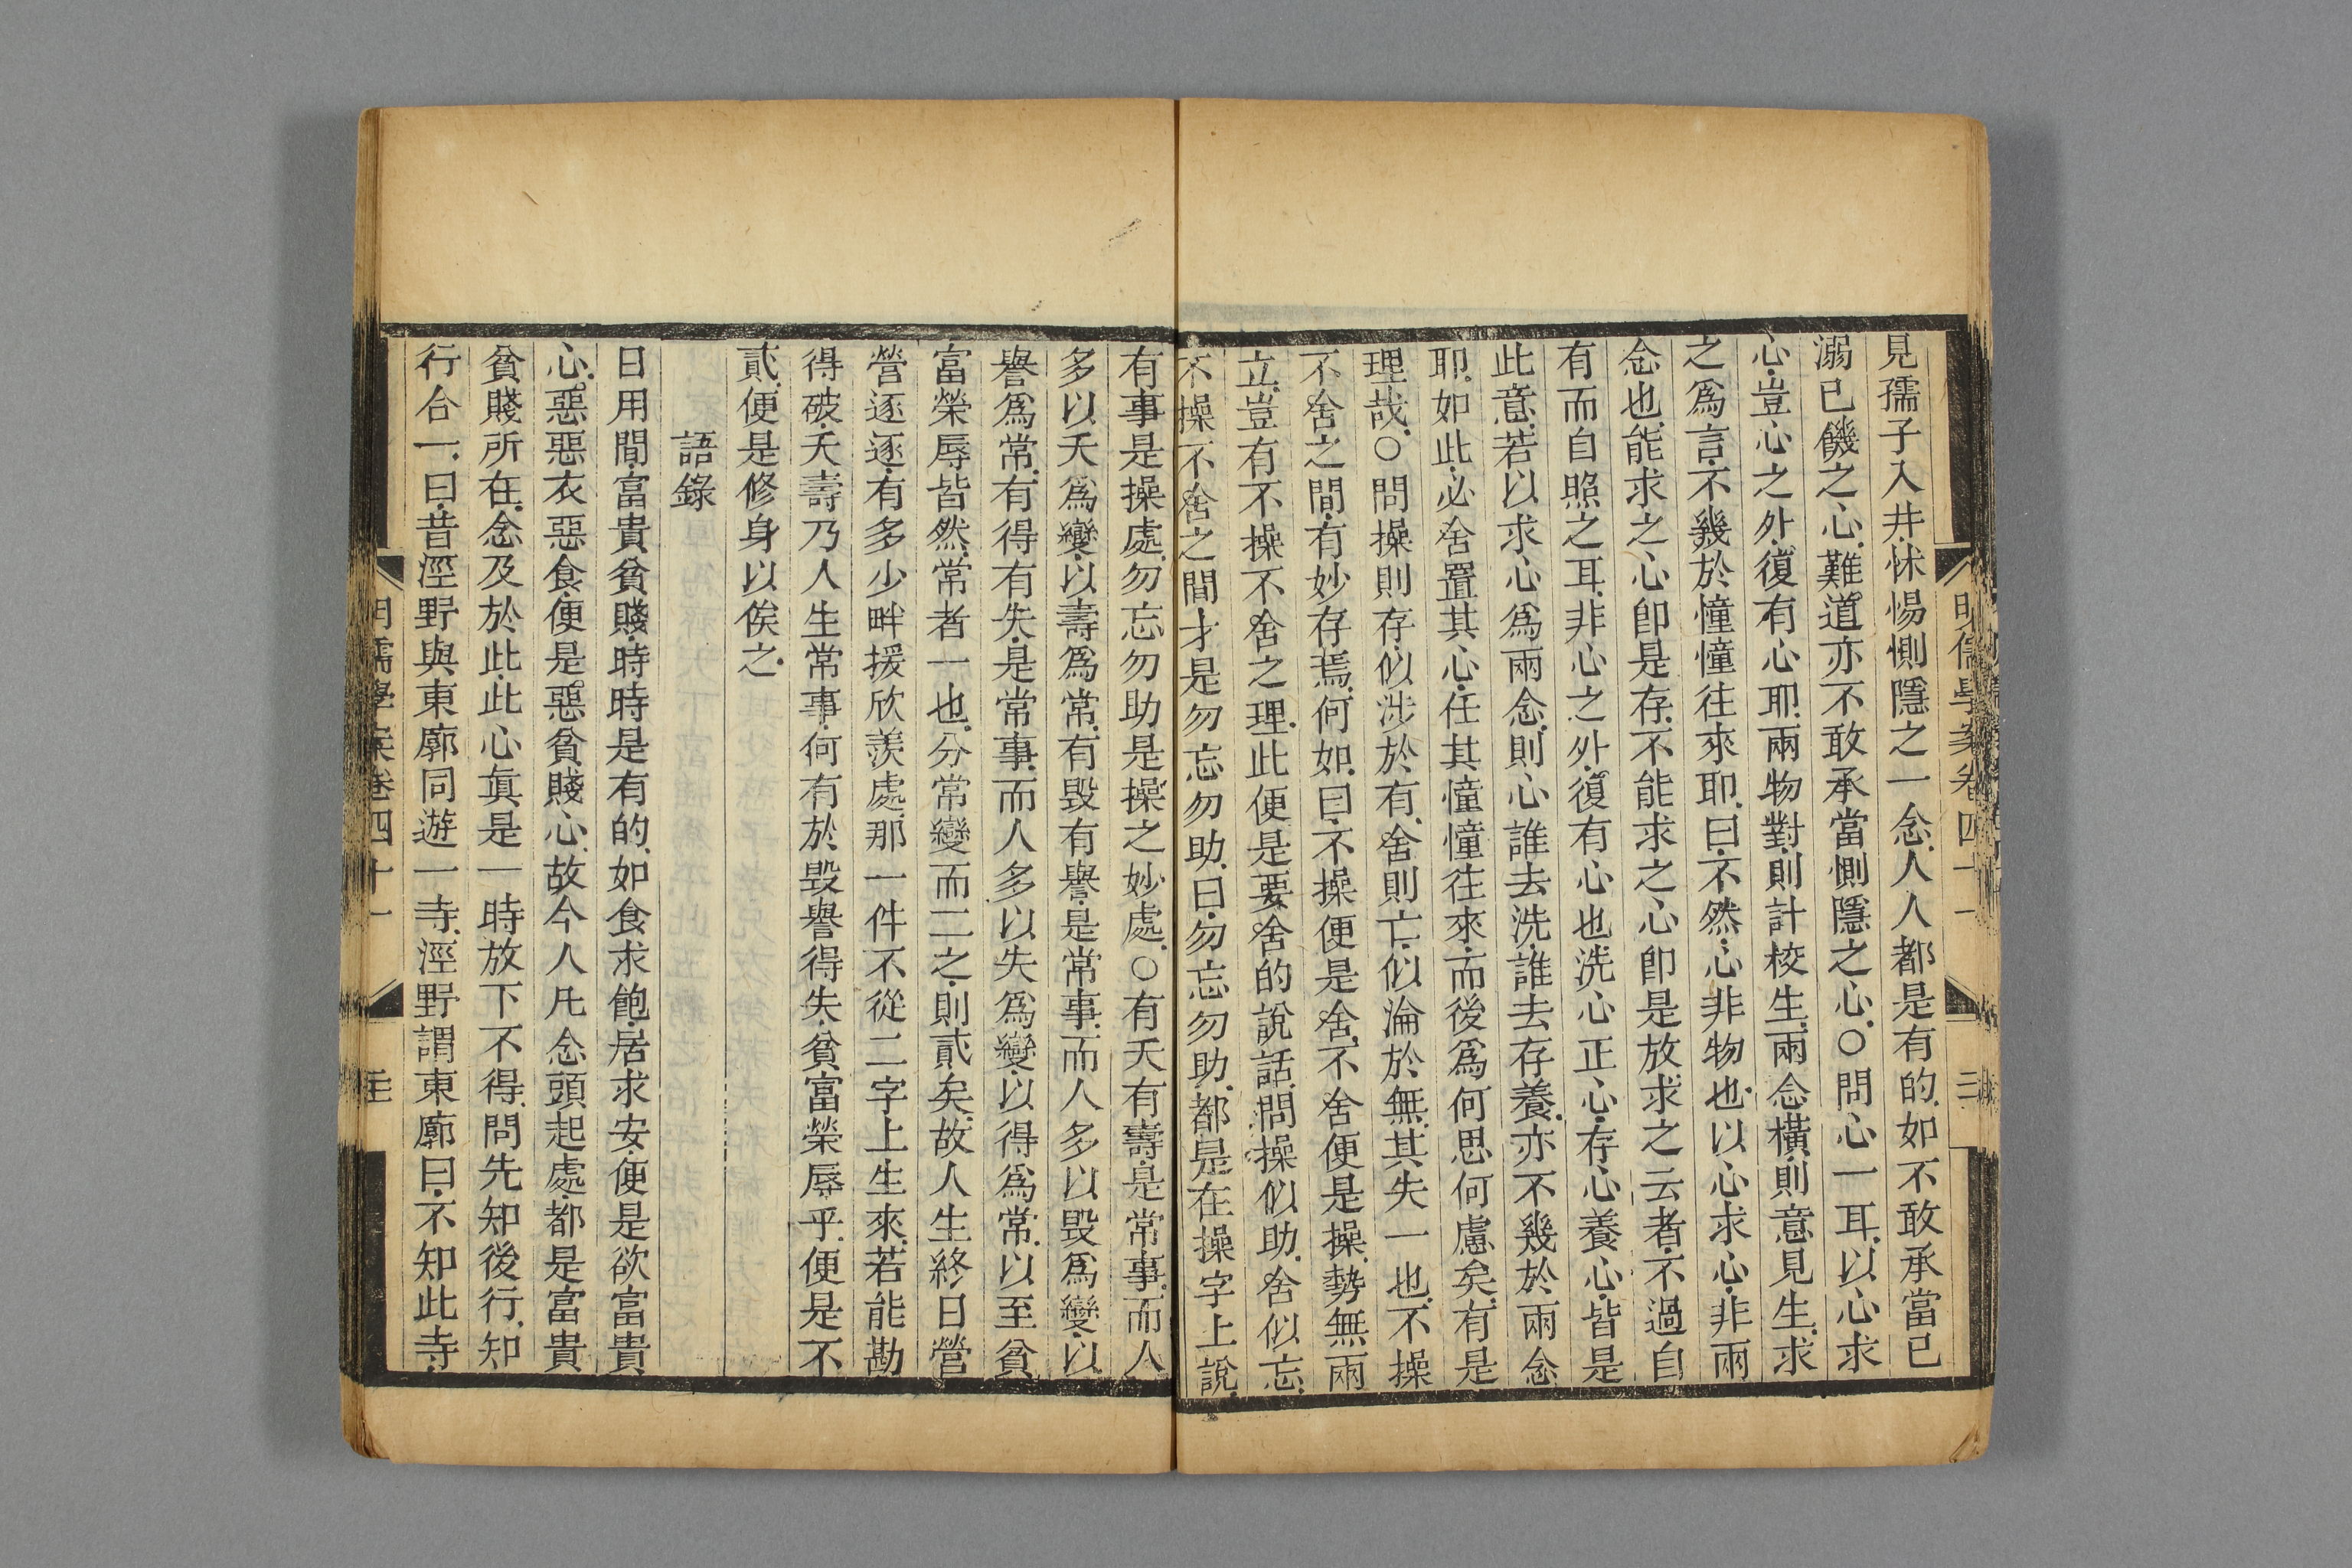 明儒學案卷四十一
見孺子入井.怵惕惻隱之一念.人人都是有的.如不敢承當己
溺己饑之心.難道亦不敢承當惻隱之心.○問心一耳.以心求
心.豈心之外.復有心耶.兩物對.則計校生.兩念橫.則意見生.求
之爲言.不幾於憧憧往來耶.曰.不然.心非物也.以心求心.非兩
念也.能求之心卽是存.不能求之心卽是放.求之云者.不過自
有而自照之耳.非心之外.復有心也.洗心正心.存心養心.皆是
此意.若以求心爲兩念.則心誰去洗.誰去存養.亦不幾於兩念
耶.如此.必舍置其心.任其憧憧往來.而後爲何思何慮矣.有是
理哉.○問操則存.似涉於有.舍則亡.似淪於無.其失一也.不操
不舍之間.有妙存焉.何如.曰.不操便是舍.不舍便是操.勢無兩
立.豈有不操不舍之理.此便是要舍的說話.問操似助.舍似忘.
不操不舍之間.才是勿忘勿助.曰.勿忘勿助.都是在操字上說.
有事是操處.勿忘勿助是操之妙處.○有夭有壽.是常事.而人
多以夭爲變.以壽爲常.有毀有譽.是常事.而人多以毀爲變.以
譽爲常.有得有失.是常事.而人多以失爲變.以得爲常.以至貧
富榮辱皆然.常者一也.分常變而二之.則貳矣.故人生終日營
營逐逐.有多少畔援欣羨處.那一件不從二字上生來.若能勘
得破.夭壽乃人生常事.何有於毀譽得失.貧富榮辱乎.便是不
貳.便是修身以俟之.
語錄
日用間.富貴貧賤.時時是有的.如食求飽.居求安.便是欲富貴
心.惡惡衣惡食.便是惡貧賤心.故今人凡念頭起處.都是富貴
貧賤所在.念及於此.此心眞是一時放下不得.問先知後行.知
行合一.曰.昔涇野與東廓同遊一寺.涇野謂東廓曰.不知此寺.
明儒學案卷四十一